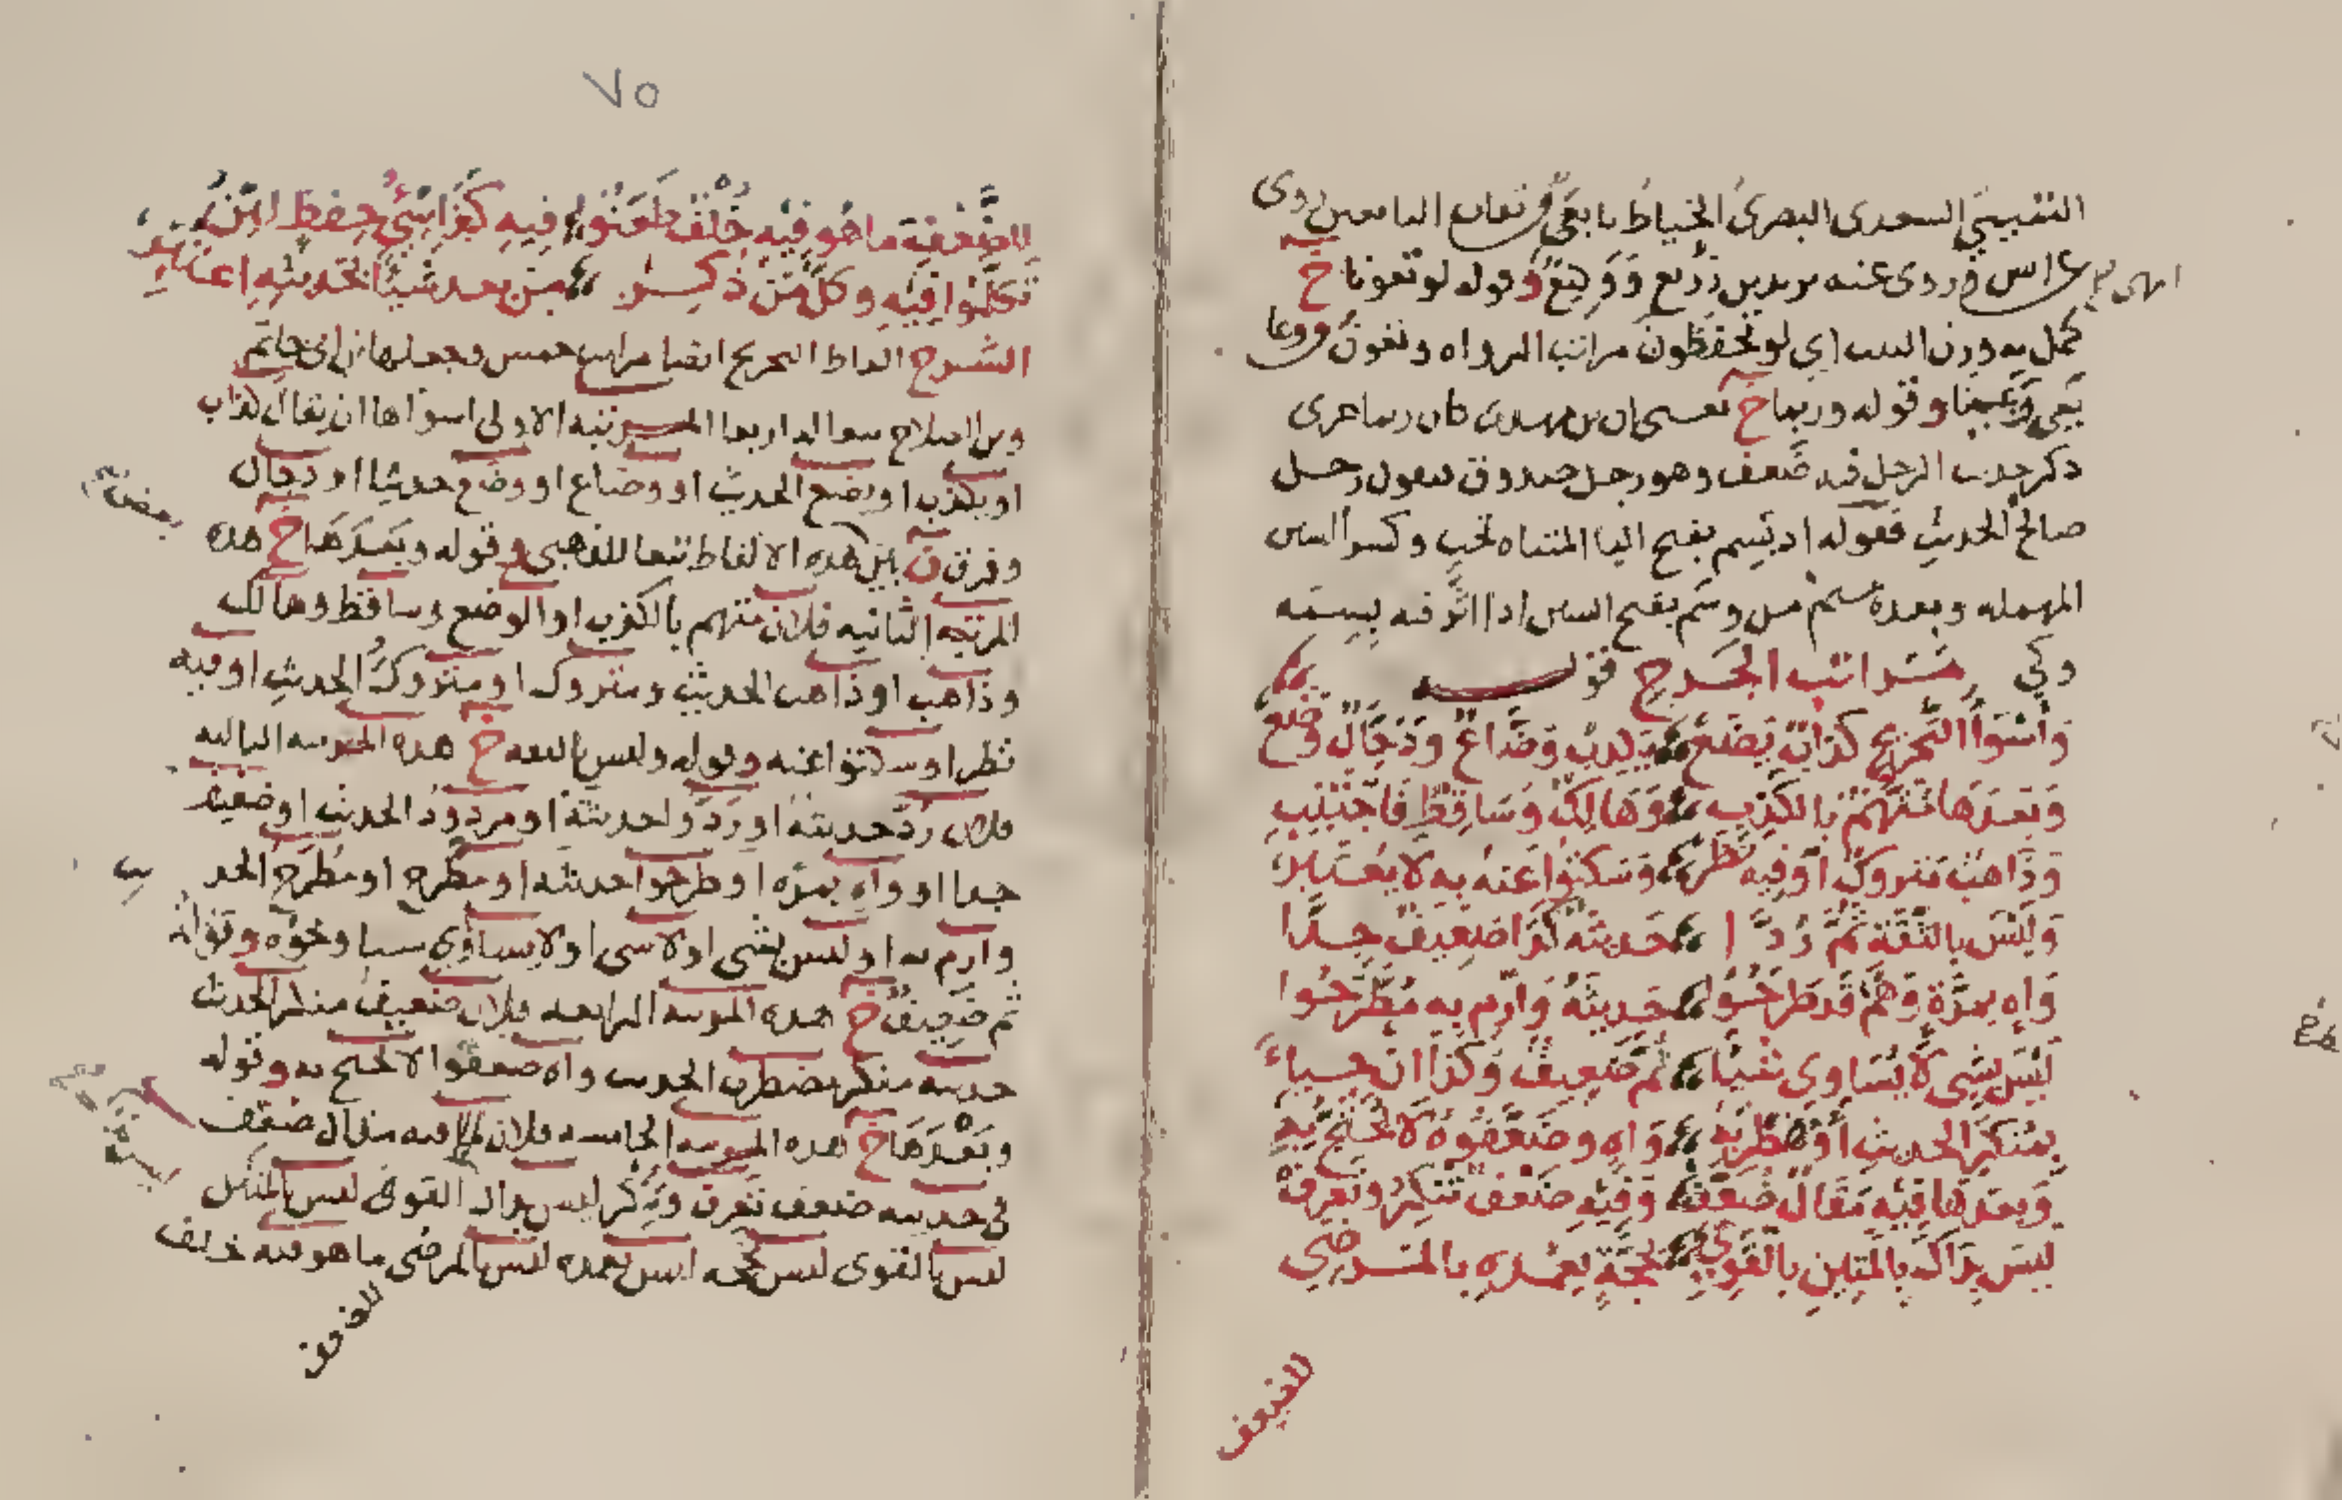 التميمي السعدي البصري الخياط تابعي في تعات التابعين روى
عن انس وروى عنه يزيد بن زريع ووكيع وقوله لو تعونا خ
كمل به وزن البيت اي لو تحفظون مراتب الرواه وتعون ووعا
بمعني وقوله وربما خ يعني ان بن مهدي كان ربما جرى
ذكر حديث الرجل فيه ضعف وهو رجل صدوق فيقول رجل
صالح الحديث فقوله اذ يسم بفتح اليا المثناه تحت وكسر السين
المهمله وبعده ميم من وسم بفتح السين اذا اثر فيه بسمه
وكي مراتب الجرح قوله
وأسوأ التجريح كذاب يضع يكذب وضاع ودجال وضع
وبعدها متهم بالكذب وهالك وساقط فاجتنب
وذاهب متروك او فيه نظر وسكتوا عنه به لا يعتبر
وليس بالثقة ثم ردا حديثه كذا ضعيف جدا
واه بمرة وهم قد طرحوا حديثه وارم به مطرح
ليس بشي لا يساوي شيئا ثم ضعيف وكذا ان جيا
بمنكر الحديث او مضطربه واه وضعفوه لا يحتج به
وبعدها فيه مقال ضعف وفيه ضعف تنكر وتعرف
ليس بذاك بالمتين بالقوي بحجة بعمده بالمرضي
للضعف
٧٥
للضعف ما هو فيه خلف طعنوا فيه كذا سيئ حفظ لين
تكلموا فيه وكل من ذكر من بعد شيئا بحديثه اعتبر
الشرح الفاظ التجريح ايضا مراتب خمس وجعلها بن ابي حاتم
وبن الصلاح تبعا له اربعا المرتبه الاولى اسواها ان يقال كذاب
او يكذب او يضع الحديث او وضاع او وضع حديثا او دجال
وفرق ن بين هذه الالفاظ تبعا للذهبي وقوله وبعدها خ هذه
المرتبه الثانيه فلان متهم بالكذب او الوضع وساقط وهالك
وذاهب او ذاهب الحديث ومتروك او متروك الحديث او فيه
نظر او سكتوا عنه وقوله وليس بالثقه خ هذه المرتبه الثالثه
فلان رد حديثه او ردوا حديثه او مردود الحديث او ضعيف
جدا او واه بمره او طرحوا حديثه او مطرح او مطرح الحد
وارم به او ليس بشي او لا شي او لا يساوي شيا ونحوه وقوله
ثم ضعيف خ هذه المرتبه الرابعه فلان ضعيف منكر الحديث
حديثه منكر مضطرب الحديث واه ضعفوا لا يحتج به وقوله
وبعدها خ هذه المرتبه الخامسه فلان فيه مقال ضعف
في حديثه ضعف تعرف وتنكر ليس بذاك القوي ليس بالمتين
ليس بالقوي ليس بحجه ليس بعمده ليس بالمرضي ما هو فيه خلف
للضعف